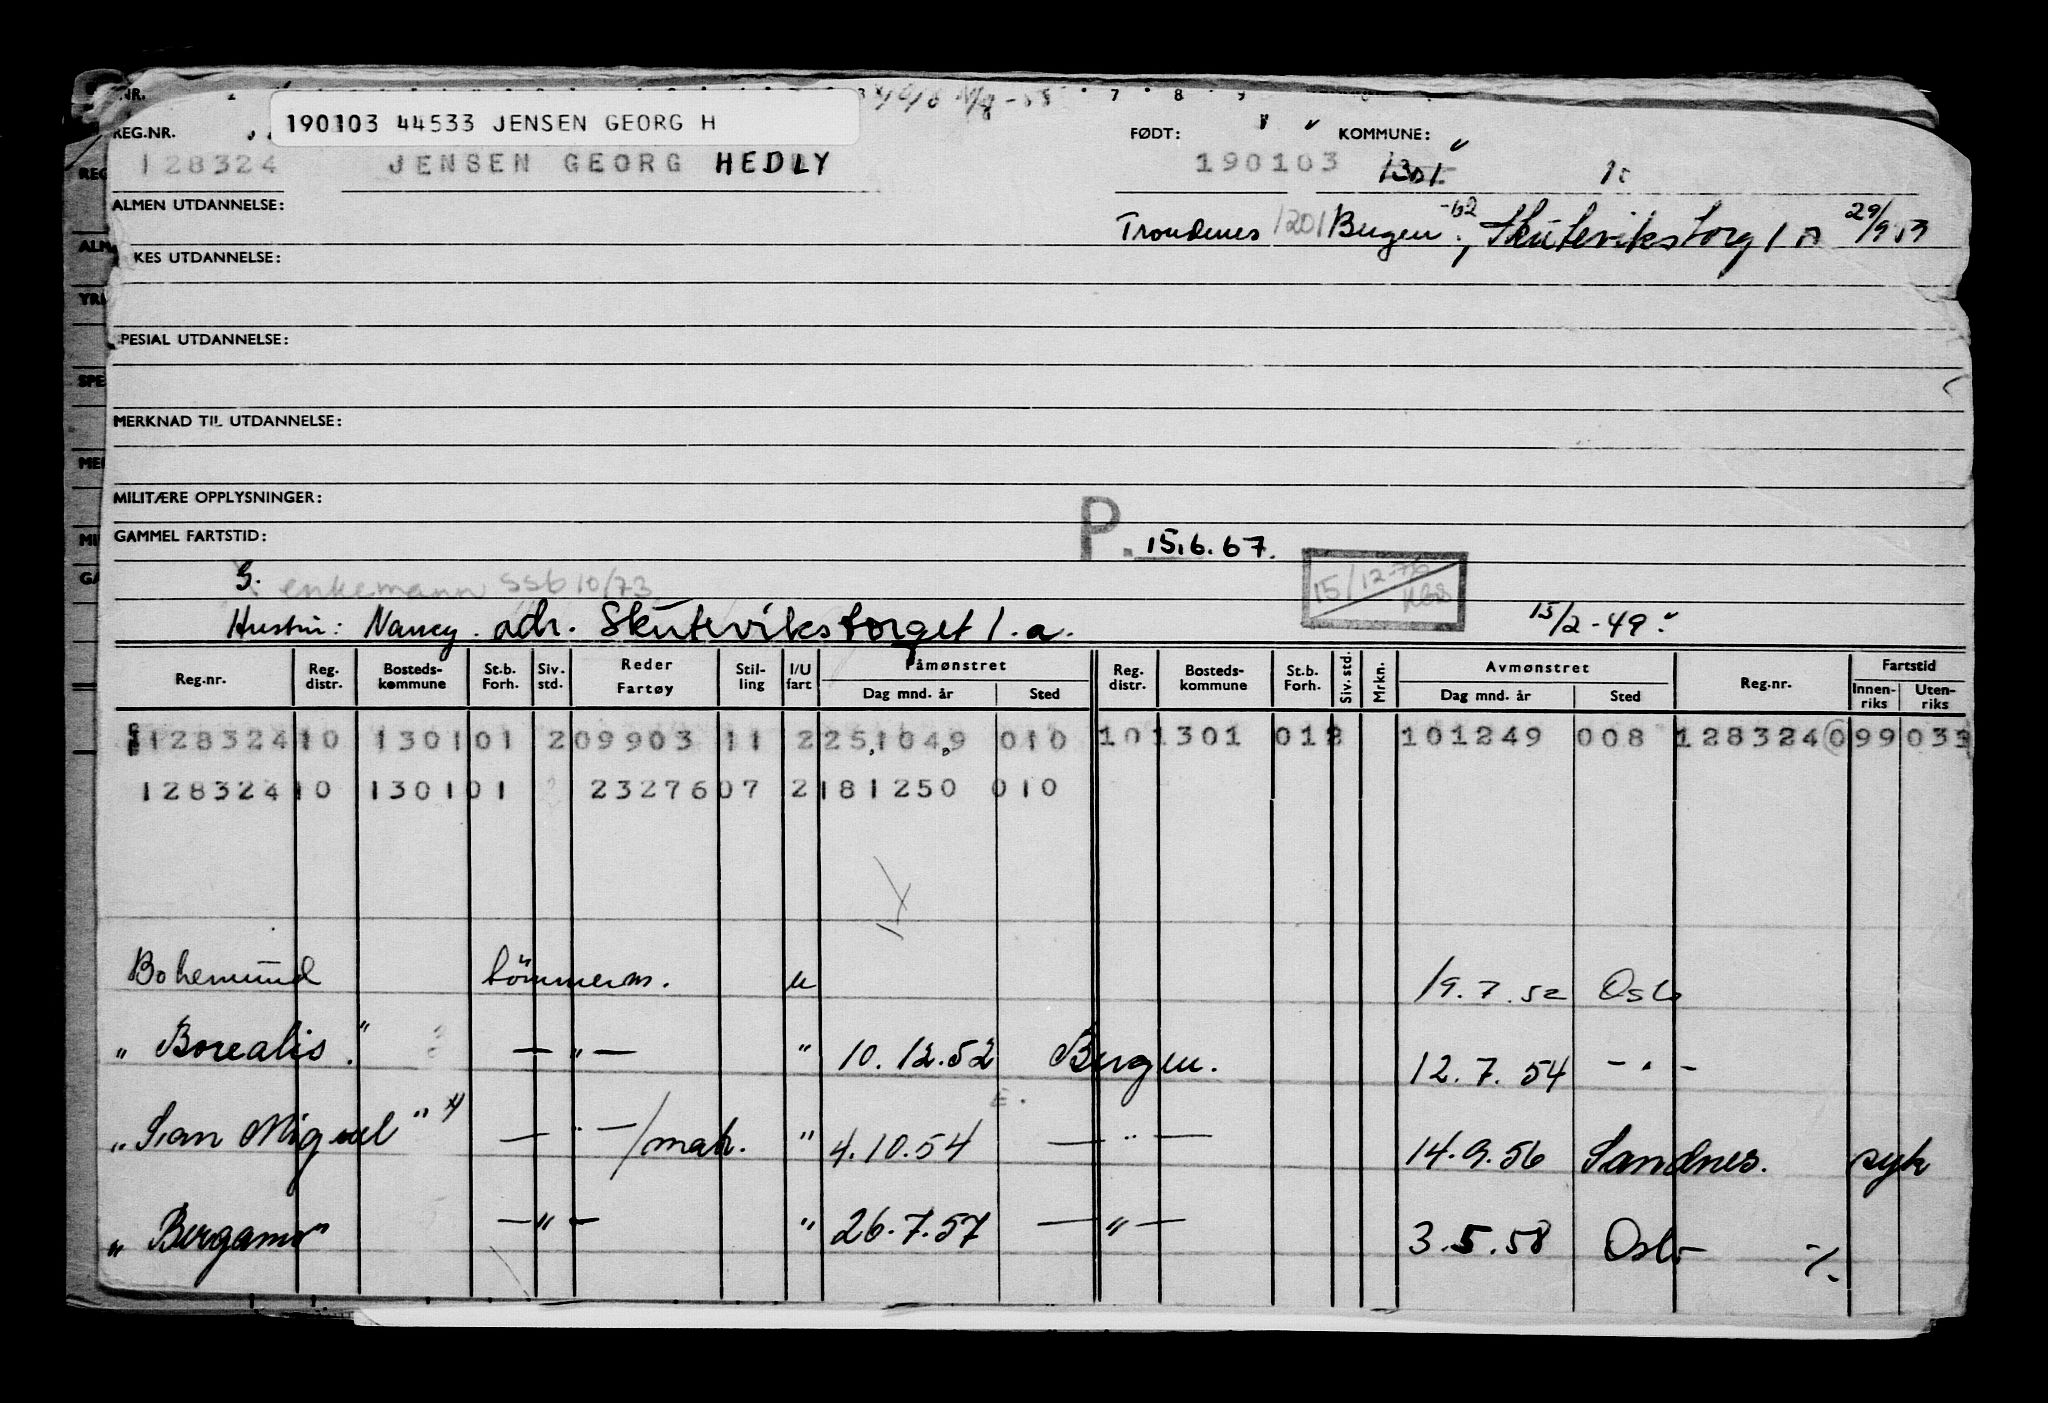 190103 44533 JENSEN GEORG H
NR. 7 8 9
REG.NR. FØDT: KOMMUNE:
128324 JENSEN GEORG HEDLY 190103 1301
ALMEN UTDANNELSE:
Trondenes 1201 Bergen -62, Skuteviks torg 1 a 29/9 59
KES UTDANNELSE:
SPESIAL UTDANNELSE:
MERKNAD TIL UTDANNELSE:
MILITÆRE OPPLYSNINGER:
GAMMEL FARTSTID: P. 15.6.67.
G. enkemann ssb 10/73
Hustru: Nancy. adr. Skuteviks torget 1.a. 15/2-49.
Reg.nr. Reg. distr. Bosteds-kommune St.b. Forh. Siv. std. Reder Fartøy Stil-ling I/U fart Påmønstret Dag mnd. år Sted Reg. distr. Bosteds-kommune St.b. Forh. Siv. std. Mrkn. Avmønstret Dag mnd. år Sted Reg.nr. Fartstid Innen-riks Uten-riks
128324 10 1301 01 2 09903 11 2 251049 010 10 1301 01 2 101249 008 128324 0 99 033
128324 10 1301 01 23276 07 2 181250 010
Bohemund tömmerm. u 19.7.52 Oslo
"Borealis." — " — " 10.12.52 Bergen. 12.7.54 - " -
"San Miguel" x) — " — /matr. " 4.10.54 — " — 14.9.56 Sandnes. syk
"Bergamo" — " — " 26.7.57 — " — 3.5.58 Oslo -/-